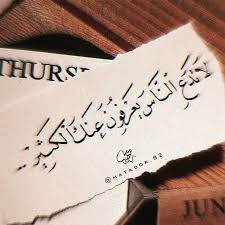 THURS
JUN
لا تدع الناس يعرفون عنك الكثير..
JUN